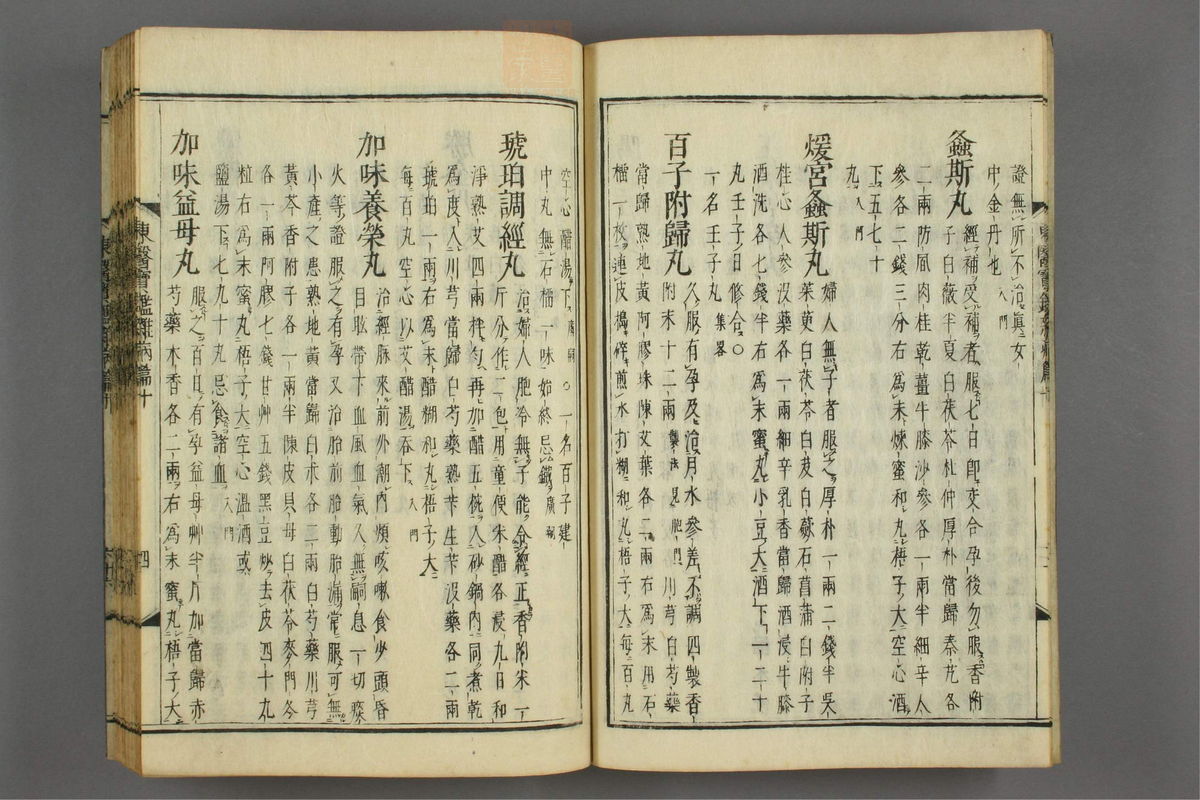 證無所不治眞女
中金丹也入門
螽斯丸
經補受補者服七日卽交合孕後勿服香附
子白薇半夏白茯苓杜仲厚朴當歸秦艽各
二兩防風肉桂乾薑牛膝沙參各一兩半細辛人
參各二錢三分右爲末煉蜜和丸梧子大空心酒
下五七十
丸入門
煖宮螽斯丸
婦人無子者服之厚朴一兩二錢半吳
茱萸白茯苓白芨白蘞石菖蒲白附子
桂心人參沒藥各一兩細辛乳香當歸酒浸牛膝
酒洗各七錢半右爲末蜜丸小豆大酒下一二十
丸壬子日修合○
一名壬子丸集畧
百子附歸丸
久服有孕及治月水參差不調四製香
附末十二兩製法見胞門川芎白芍藥
當歸熟地黃阿膠珠陳艾葉各二兩右爲末用石
榴一枚連皮搗碎煎水打糊和丸梧子大每百丸
空心醋湯下廣嗣○一名百子建
中丸無石榴一味始終忌鐵廣嗣
琥珀調經丸
治婦人胞冷無子能令經正香附米一
斤分作二包用童便米醋各浸九日和
淨熟艾四兩拌勻再加醋五椀入砂鍋內同煮乾
爲度入川芎當歸白芍藥熟芐生芐沒藥各二兩
琥珀一兩右爲末醋糊和丸梧子大
每百丸空心以艾醋湯呑下入門
加味養榮丸
治經脉來前外潮內煩咳嗽食少頭昏
目眩帶下血風血氣久無嗣息一切痰
火等證服之有孕又治胎前胎動胎漏常服可無
小產之患熟地黃當歸白朮各二兩白芍藥川芎
黃芩香附子各一兩半陳皮貝母白茯苓麥門冬
各一兩阿膠七錢甘艸五錢黑豆炒去皮四十九
粒右爲末蜜丸梧子大空心溫酒或
鹽湯下七九十丸忌食諸血入門
加味益母丸
服之百日有孕益母艸半斤加當歸赤
芍藥木香各二兩右爲末蜜丸梧子大
東醫寶鑑雜病篇十
四